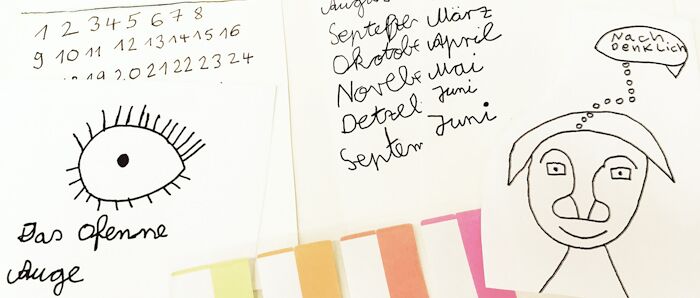 1 2 3 4 5 6 7 8
9 10 11 12 13 14 15 16
19 20 21 22 23 24
Das Ofenne
Auge
März
April
Novebe Mai
Detzel Juni
Septem Juni
Nach
Denklich